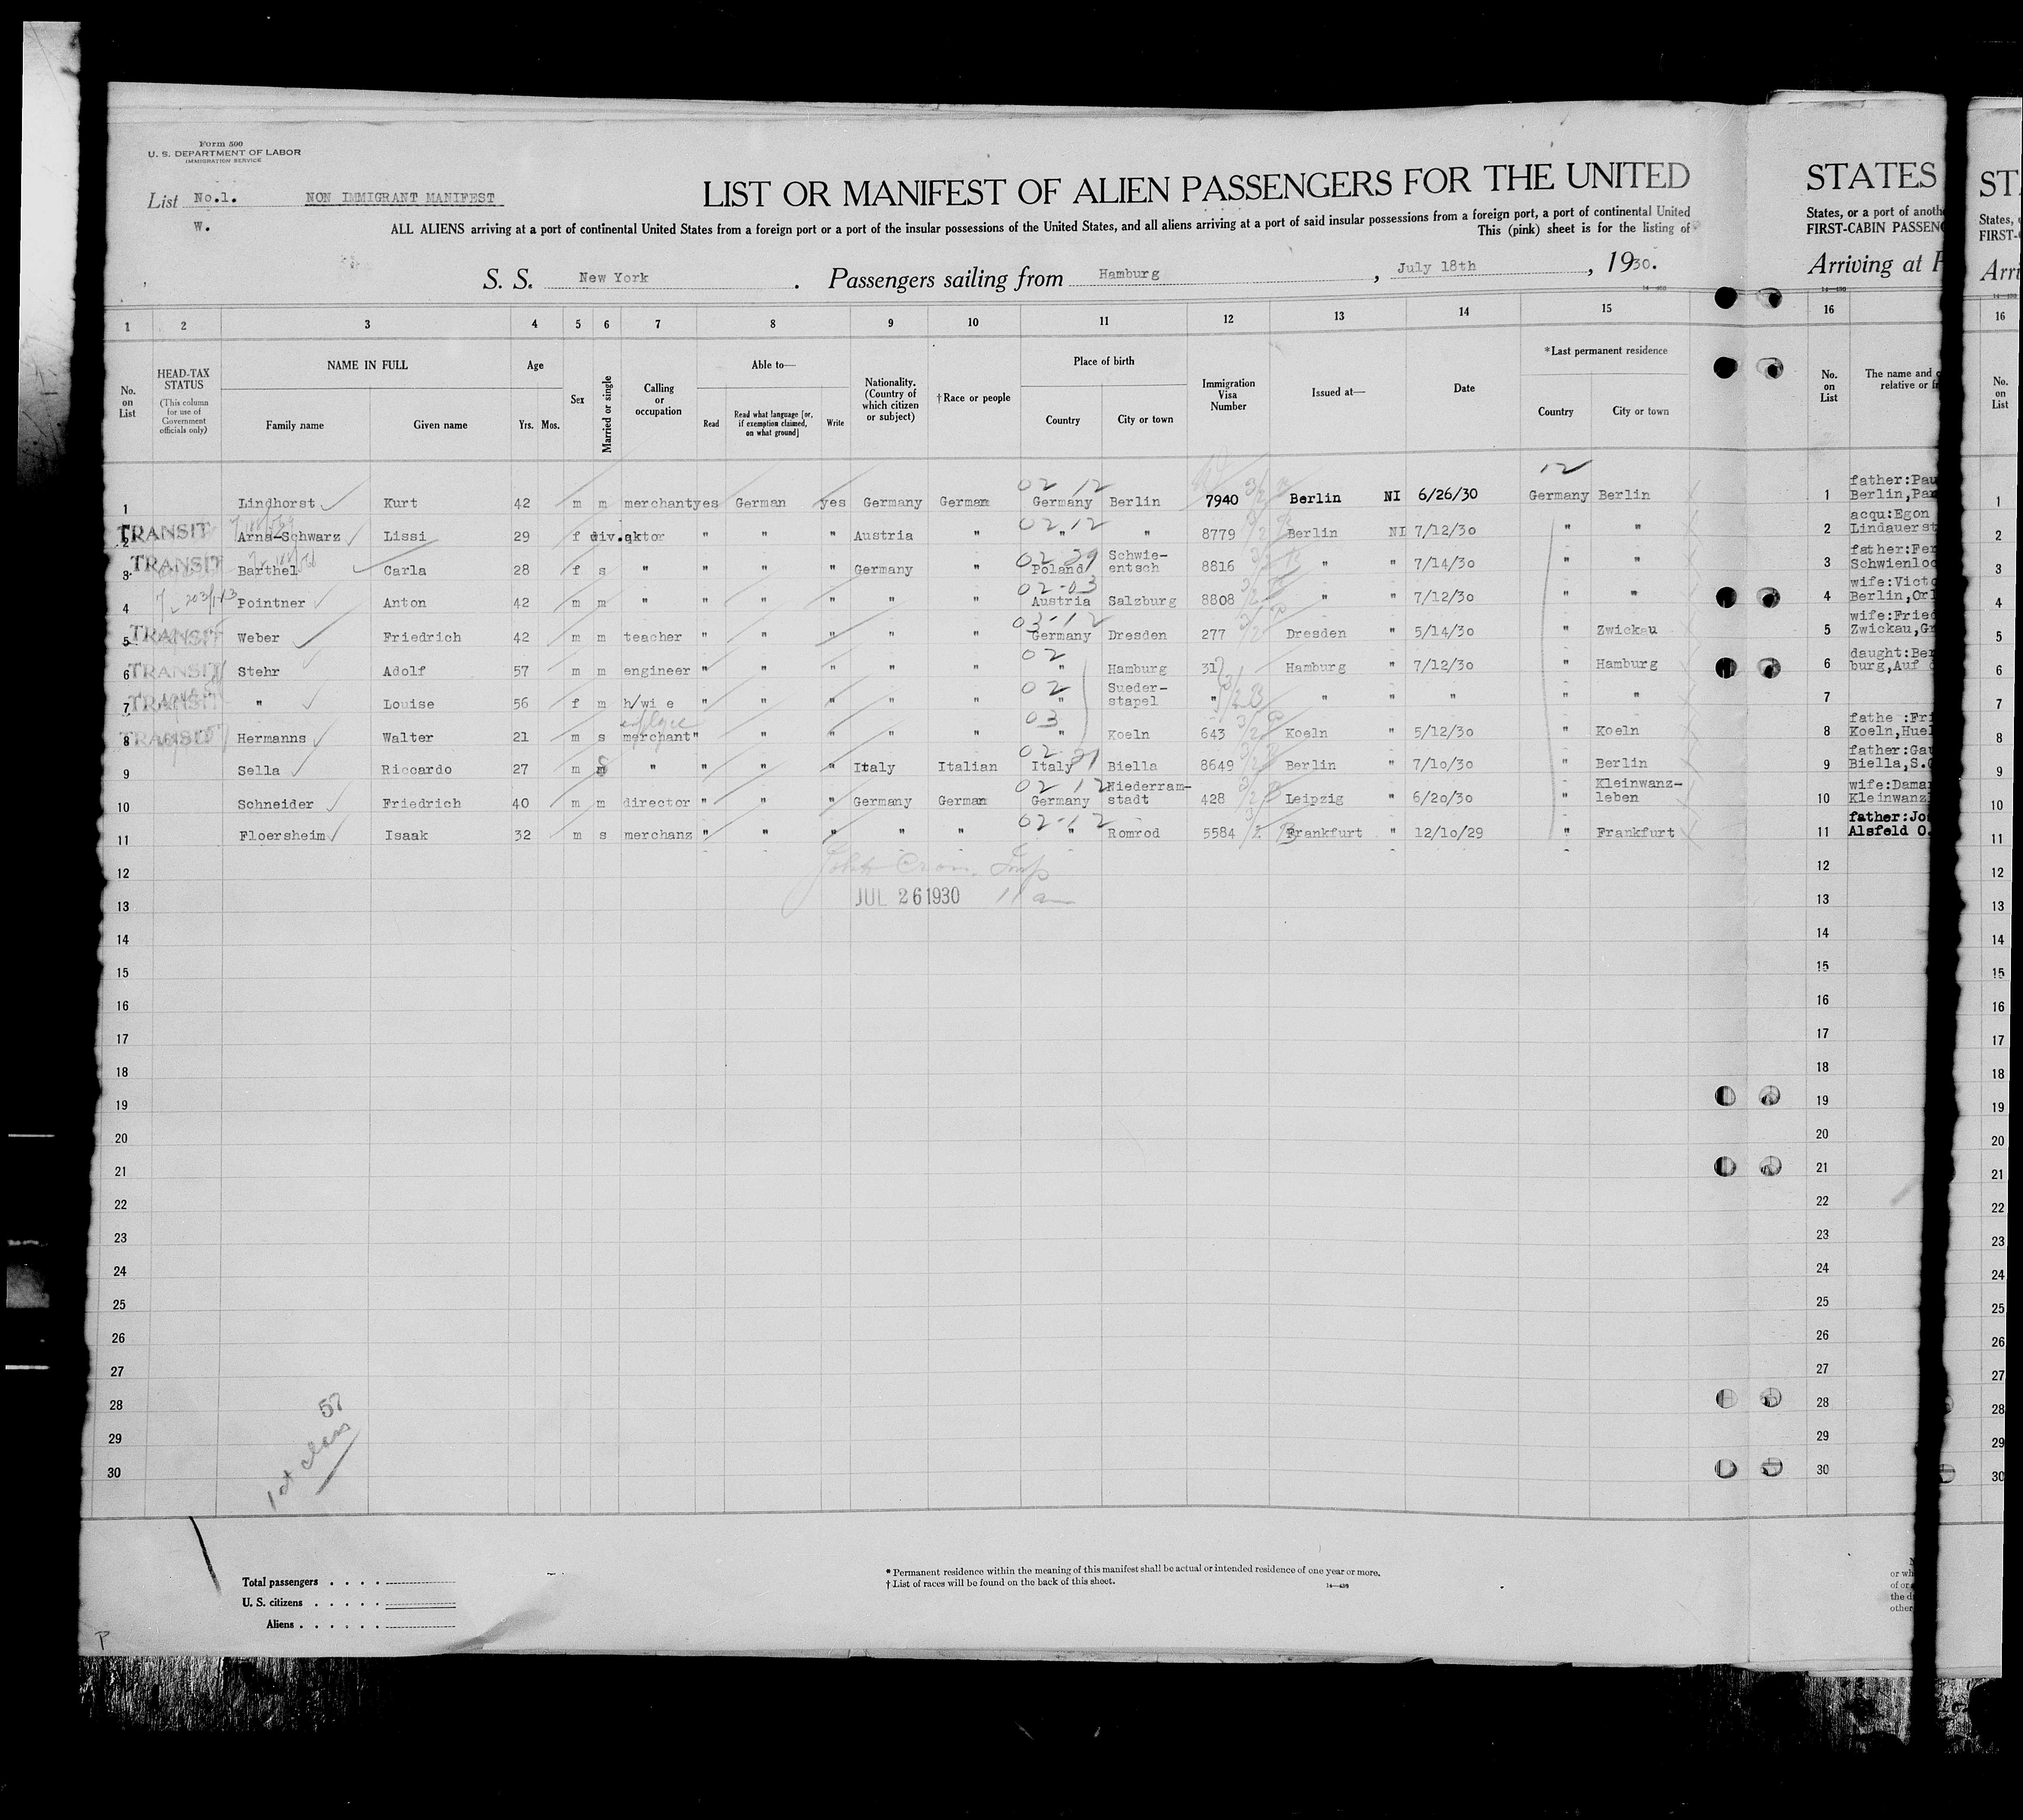 Form 500
U. S. DEPARTMENT OF LABOR
IMMIGRATION SERVICE
List No.1. NON IMMIGRANT MANIFEST
W.
LIST OR MANIFEST OF ALIEN PASSENGERS FOR THE UNITED
ALL ALIENS arriving at a port of continental United States from a foreign port or a port of the insular possessions of the United States, and all aliens arriving at a port of said insular possessions from a foreign port, a port of continental United
This (pink) sheet is for the listing of
S. S. New York . Passengers sailing from Hamburg , July 18th , 1930.
1 2 3 4 5 6 7 8 9 10 11 12 13 14 15
No. on List
HEAD-TAX STATUS
(This column for use of Government officials only)
NAME IN FULL
Family name Given name
Age
Yrs. Mos.
Sex
Married or single
Calling or occupation
Able to—
Read
Read what language [or, if exemption claimed, on what ground]
Write
Nationality. (Country of which citizen or subject)
†Race or people
Place of birth
Country City or town
Immigration Visa Number
Issued at—
Date
*Last permanent residence
Country City or town
12
02 12
1 Lindhorst Kurt 42 m m merchant yes German yes Germany German Germany Berlin 7940 Berlin NI 6/26/30 Germany Berlin
02 12
TRANSIT 2 Arna-Schwarz Lissi 29 f div. aktor " " " Austria " " " 8779 Berlin NI 7/12/30 " "
02 29
TRANSIT 3 Barthel Carla 28 f s " " " " Germany " Poland Schwie-entsch 8816 " " 7/14/30 " "
02-03
4 Pointner Anton 42 m m " " " " " " Austria Salzburg 8808 " " 7/12/30 " "
03-12
TRANSIT 5 Weber Friedrich 42 m m teacher " " " " " Germany Dresden 277 Dresden " 5/14/30 " Zwickau
02
TRANSIT 6 Stehr Adolf 57 m m engineer " " " " " " Hamburg 31 Hamburg " 7/12/30 " Hamburg
02
TRANSIT 7 " Louise 56 f m h/wi e " " " " " " Sueder-stapel " " " " " "
employee
03
TRANSIT 8 Hermanns Walter 21 m s merchant " " " " " " Koeln 643 Koeln " 5/12/30 " Koeln
02-21
9 Sella Riccardo 27 m s " " " " Italy Italian Italy Biella 8649 Berlin " 7/10/30 " Berlin
02 12
10 Schneider Friedrich 40 m m director " " " Germany German Germany Niederram-stadt 428 Leipzig " 6/20/30 " Kleinwanz-leben
02-12
11 Floersheim Isaak 32 m s merchanz " " " " " " Romrod 5584 Frankfurt " 12/10/29 " Frankfurt
12
13 JUL 26 1930 11 am
14
15
16
17
18
19
20
21
22
23
24
25
26
27
28
29
30
57
1st class
Total passengers
U. S. citizens
Aliens
* Permanent residence within the meaning of this manifest shall be actual or intended residence of one year or more.
† List of races will be found on the back of this sheet.
14—430
P
STATES
States, or a port of anoth
FIRST-CABIN PASSEN
Arriving at P
16
No. on List
The name and
relative or fr
1 father:Pau
Berlin,Pan
2 acqu:Egon
Lindauerst
3 father:Fer
Schwienloc
4 wife:Victo
Berlin,Orl
5 wife:Fried
Zwickau,Gr
6 daught:Ber
burg,Auf
7
8 fathe :Fri
Koeln,Huel
9 father:Gau
Biella,S.
10 wife:Damar
Kleinwanz
11 father:Jo
Alsfeld O.
12
13
14
15
16
17
18
19
20
21
22
23
24
25
26
27
28
29
30
or wh
of or
the d
other
ST
States,
FIRST-
Arri
16
No. on List
1
2
3
4
5
6
7
8
9
10
11
12
13
14
15
16
17
18
19
20
21
22
23
24
25
26
27
28
29
30